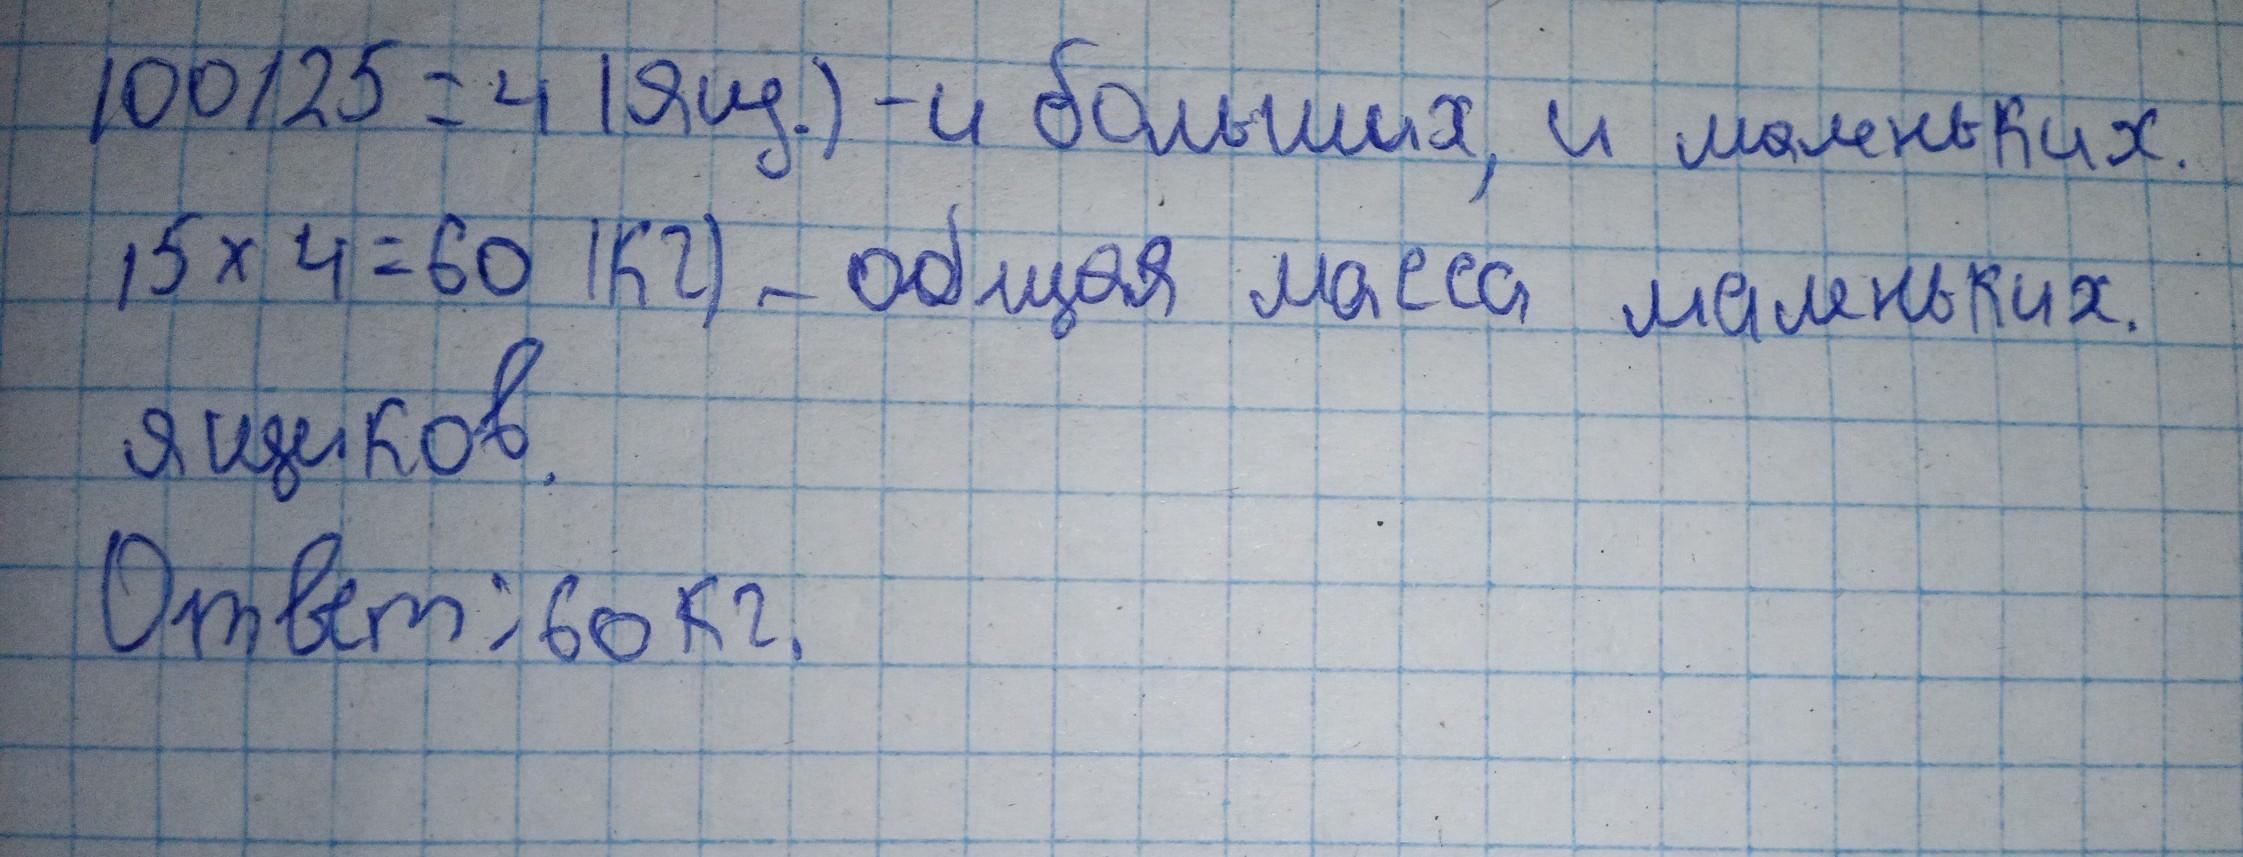 100/25=4 (ящ.) - и больших, и маленьких.
15х4=60 (кг) - общая масса маленьких.
ящиков.
Ответ: 60 кг.